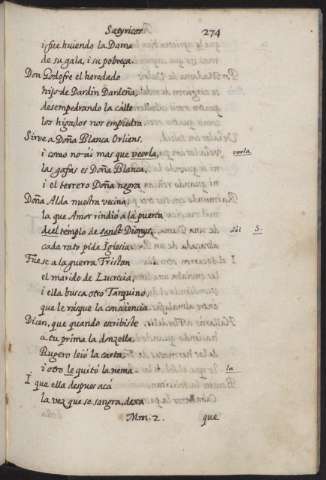 Satyricos 274
i fue huiendo la Dama
de su gala, i su pobreça.
Don Godofre el heredado
hijo de Dardin Dardeña,
desempedrando la calle
los higados nos empiedra
Sirve a Doña Blanca Orliens,
i como no ai mas que veorla, verla
las gafas es Doña Blanca,
i el terrero Doña negra
Doña Alda nuestra vecina,
la que Amor rindio a la puerta
del templo de sanct Dionys, S
cada rato pide Iglesia
Fuese a la guerra Tristan
el marido de Lucrecia,
i ella busca otro Tarquino,
que le rasque la conciencia
Dicen, que quando escribiste
a tu prima la donzella
Rugero leio la carta,
i otro le quitó la nema. la
I que ella despues acá
la vez que se sangra, dexa
Mm. 2. que